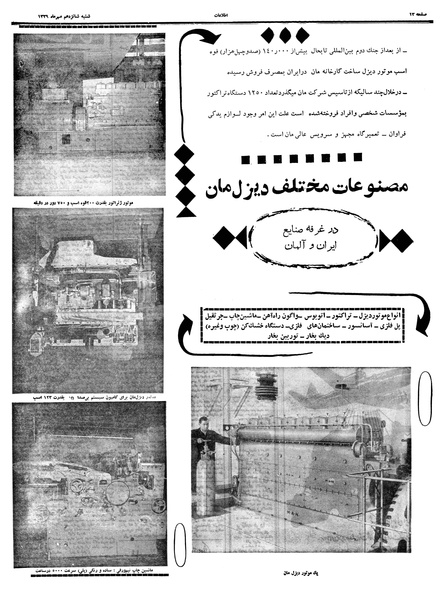 صفحه ۲۳
اطلاعات
شنبه شانزدهم مهرماه ۱۳۳۹
ـ از بعد از جنگ دوم بین‌المللی تا بحال بیش از ۱۴۰۰۰۰ (صد و چهل هزار) قوه
اسب موتور دیزل ساخت کارخانه مان در ایران بمصرف فروش رسیده
ـ در خلال چند سالیکه از تاسیس شرکت مان میگذرد تعداد ۱۲۵۰ دستگاه تراکتور
بمؤسسات شخصی و افراد فروخته شده است علت این امر وجود لوازم یدکی
فراوان ـ تعمیرگاه مجهز و سرویس عالی مان است.
مصنوعات مختلف دیزل مان
در غرفه صنایع
ایران و آلمان
انواع موتور دیزل ـ تراکتور ـ اتوبوس ـ واگون راه‌آهن ـ ماشین چاپ ـ جرثقیل
پل فلزی ـ آسانسور ـ ساختمان‌های فلزی ـ دستگاه خشک‌کن (چوب وغیره)
دیک بخار ـ توربین بخار
موتور ژنراتور بقدرت ۲۰۰ قوه اسب و ۷۵۰ دور در دقیقه
دیزل مان برای کامیون سیستم بی‌صدا بقدرت ۱۲۳ اسب
ماشین چاپ ساده و رنگی سرعت ۵۰۰۰ در ساعت
یک موتور دیزل مان